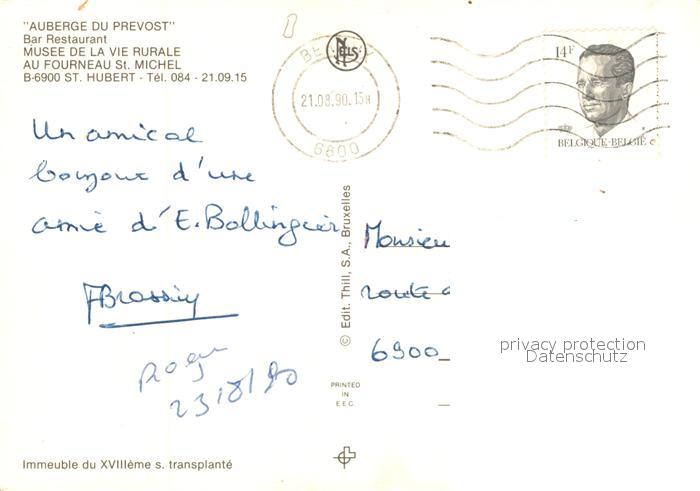 "AUBERGE DU PREVOST"
Bar Restaurant
MUSEE DE LA VIE RURALE
AU FOURNEAU St. MICHEL
B-6900 ST. HUBERT - Tél. 084 - 21.09.15
21.08.90.15H
6800
14F
BELGIQUE-BELGIË
Un amical
bonjour d'une
amie d'E. Bollinguer
23/8/90
© Edit. Thill, S.A., Bruxelles
Monsieu
route
6900
privacy protection
Datenschutz
PRINTED
IN
E.E.C.
Immeuble du XVIIIème s. transplanté